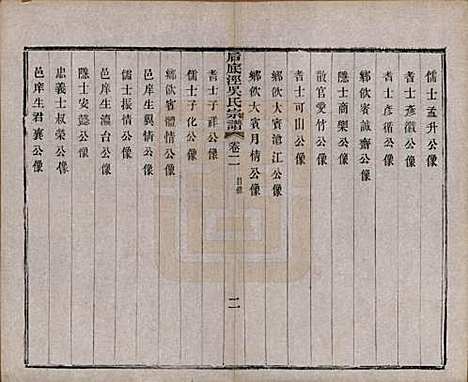 儒士孟升公像
耆士彥徵公像
耆士彥循公像
鄉飲賓誠齋公像
隱士商槼公像
散官愛竹公像
耆士可山公像
鄉飲大賓滄江公像
鄉飲大賓月倩公像
后底涇吳氏宗譜 卷二 目錄 二
耆士子祥公像
儒士子化公像
鄉飲賓體情公像
儒士振倩公像
邑庠生瀛台公像
隱士安懿公像
忠義士叔榮公像
邑庠生君襄公像